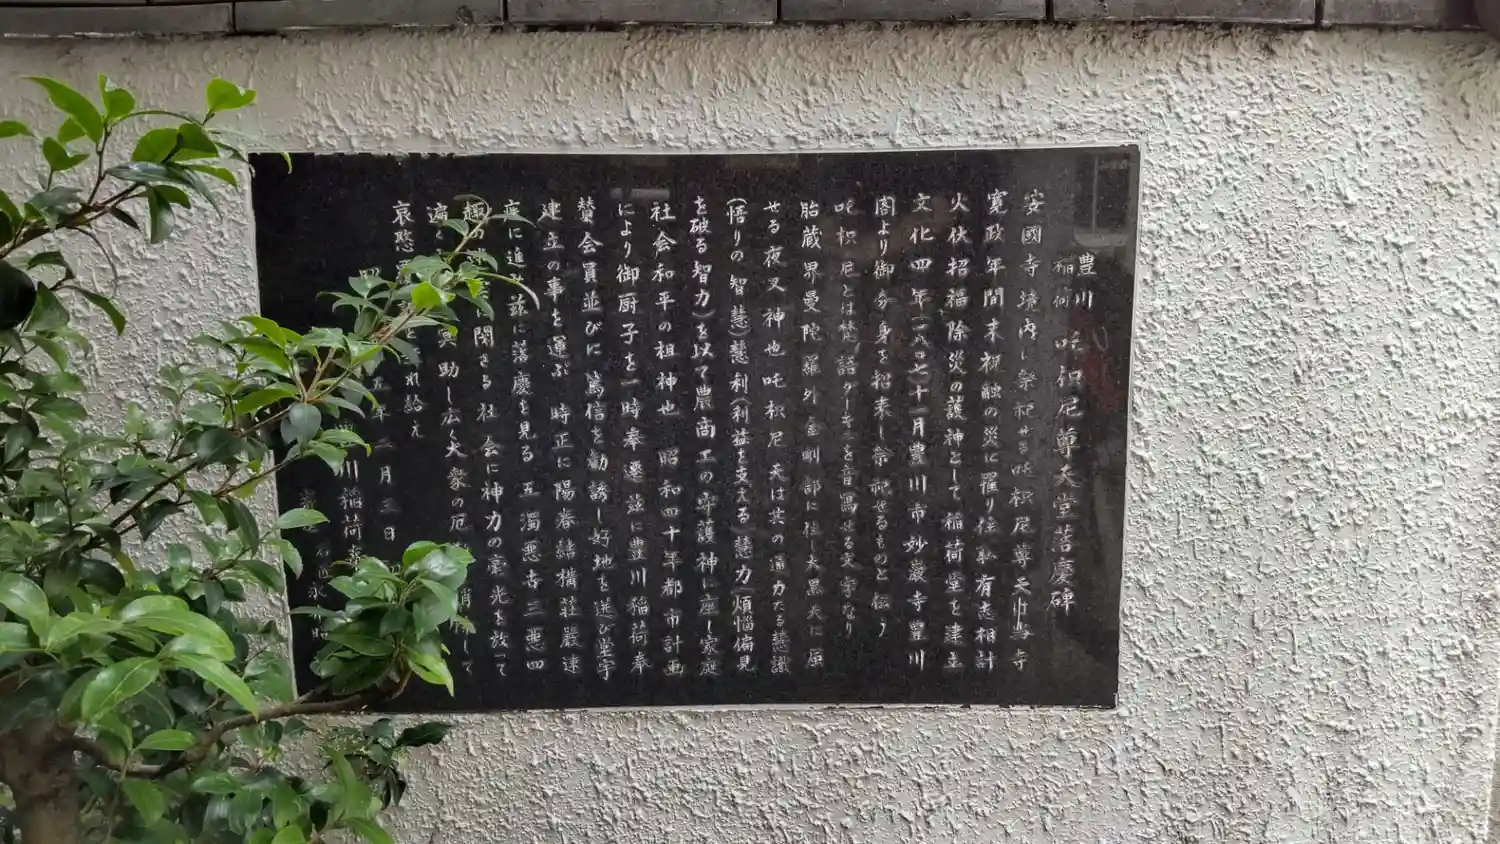 豊川
稲荷
吒枳尼尊天堂落慶碑
安國寺境内に祭祀せる吒枳尼尊天は当寺
寛政年間末祝融の災に罹り住職有志相計
火伏招福除災の護神として稲荷堂を建立
文化四年(一八〇七)十一月豊川市妙厳寺豊川
閣より御分身を招来し祭祀せるものと伝う
吒枳尼とは梵語ダーキニを音寫せる文字なり
胎蔵界曼陀羅外金剛部に住し大黒天に屈
せる夜叉神也吒枳尼天は其の通力たる慈識
(悟りの智慧)慧利(利益を支える)慧力(煩惱偏見
を破る智力)を以て農商工の守護神に座し家庭
社会和平の祖神也 昭和四十年都市計画
により御厨子を一時奉遷 茲に豊川稲荷奉
賛会員並びに篤信を勧誘し好地を選び堂宇
建立の事を運ぶ 時正に陽春結構荘厳速
疾に進み茲に落慶を見る 五濁悪世三悪四
趣 閧ぎる社会に神力の毫光を放って
遍 冥助し広く大衆の厄 消 して
哀愍 れ給え
年二月三日
川稲荷奉